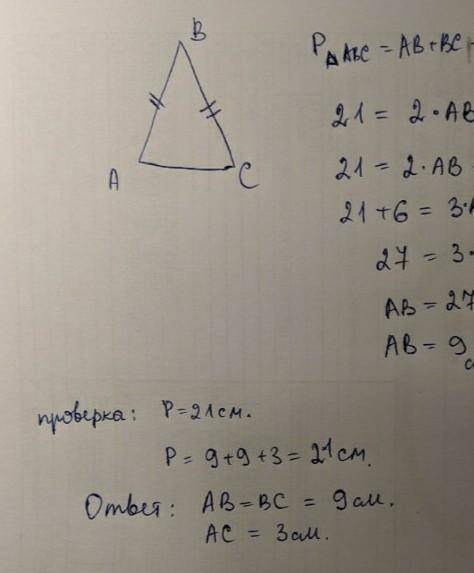 B
A
C
P△ABC = AB+BC
21 = 2·AB
21 = 2·AB
21+6 = 3·
27 = 3·
AB = 27
AB = 9
проверка: P=21см.
P = 9+9+3=21см.
Ответ: AB=BC = 9см.
AC = 3см.